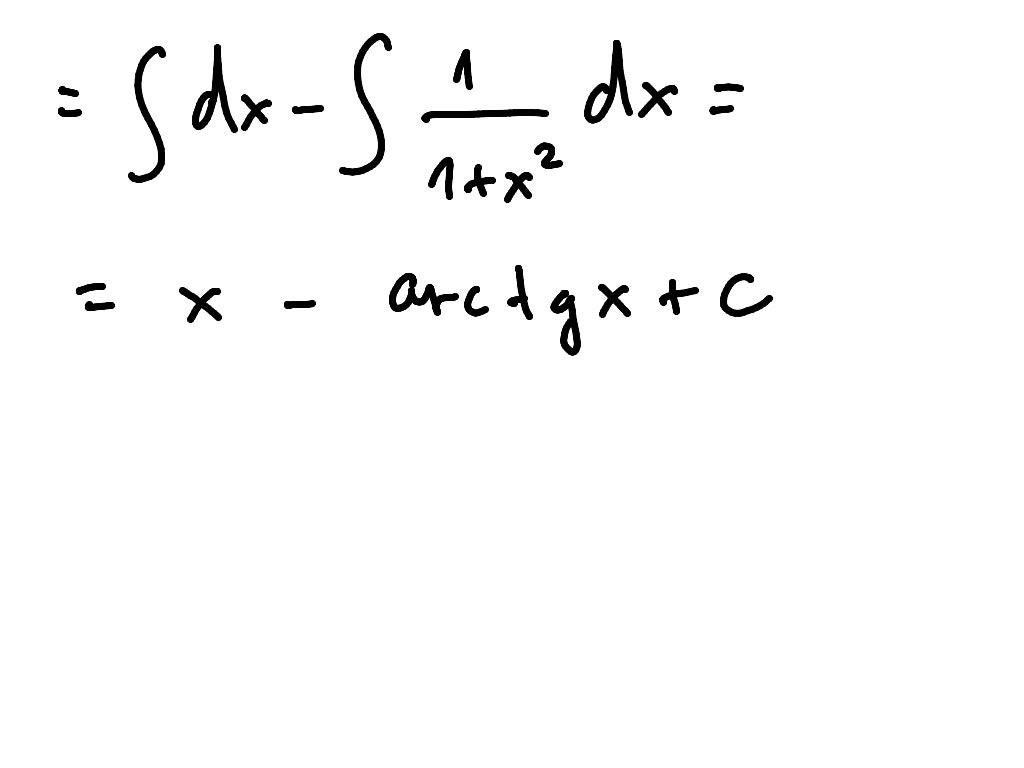 = ∫ dx - ∫ 1/(1+x²) dx =
= x - arctgx + C